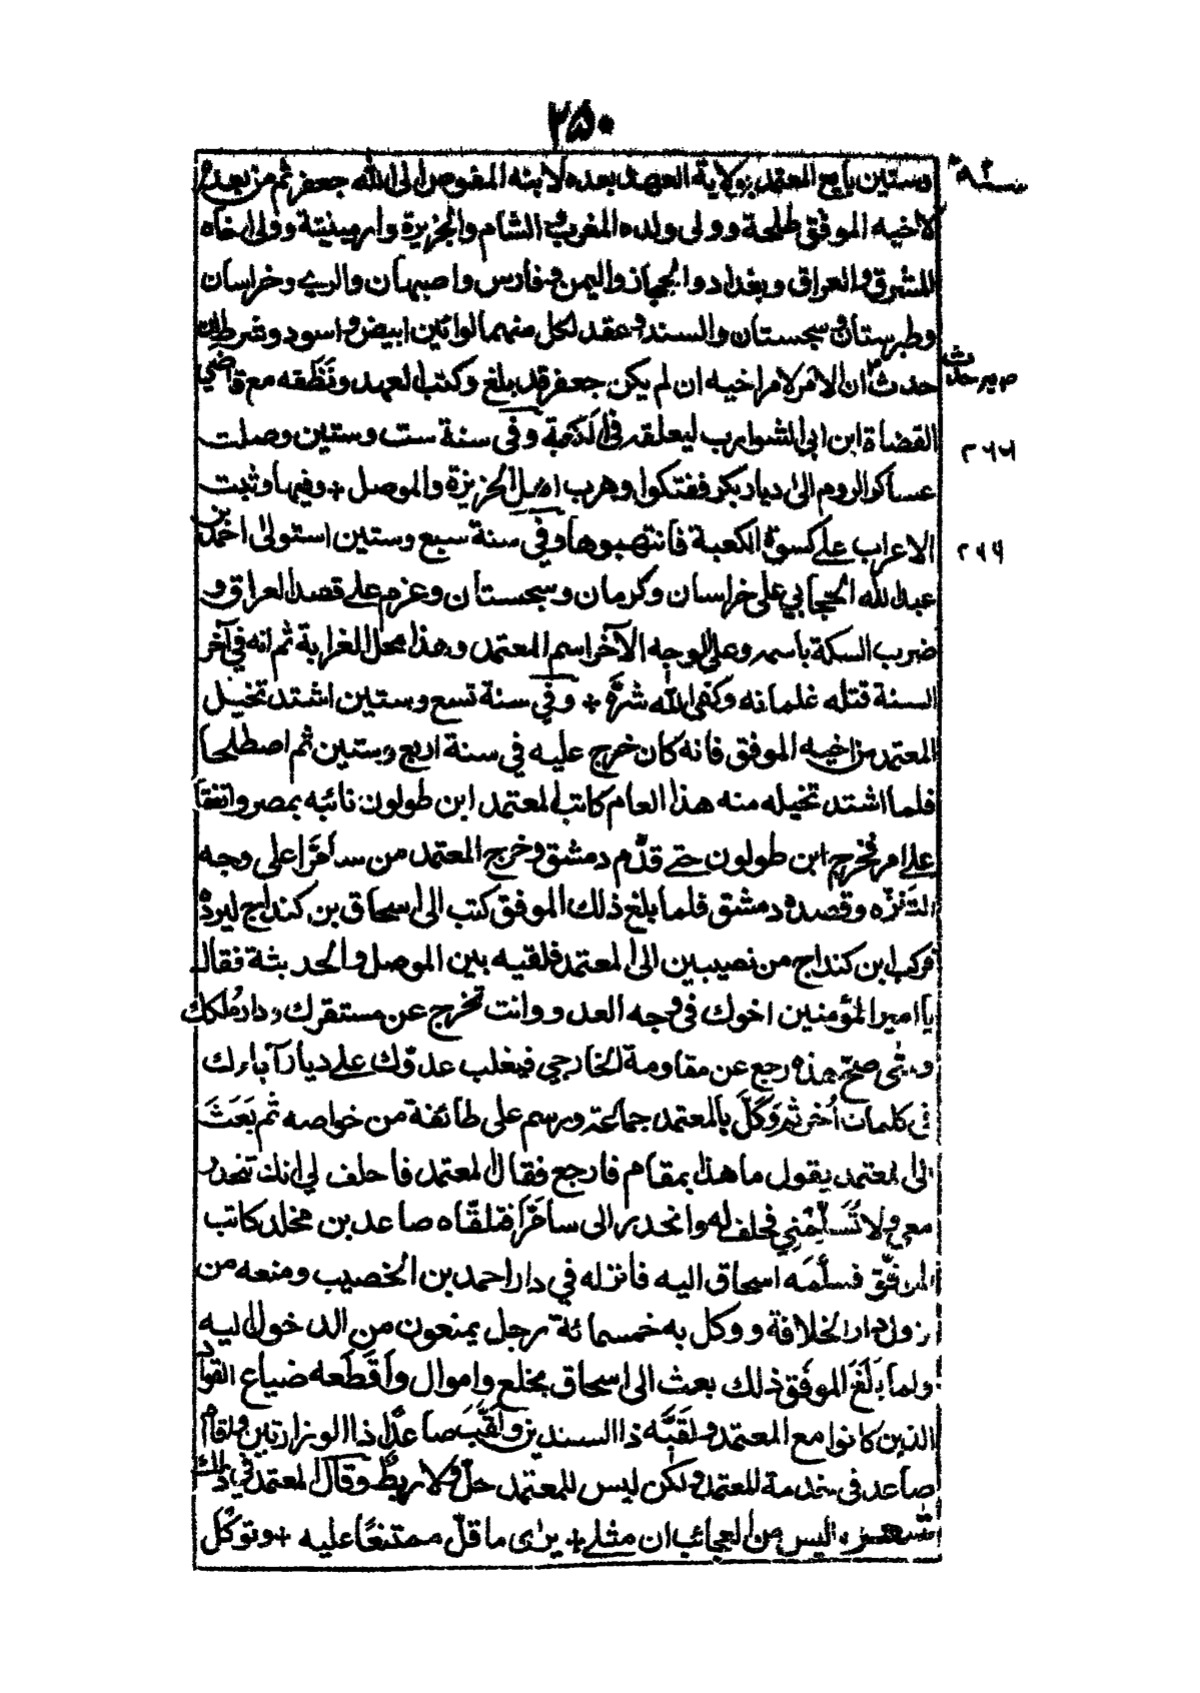 ٢٥٠
وستين بايع المعتمد بولاية العهد بعده لابنه المفوض الى الله جعفر ثم من بعده
لاخيه الموفق طلحة وولى ولده المغرب والشام والجزيرة وارمينية وولى اخاه
المشرق والعراق وبغداد والحجاز واليمن وفارس واصبهان والرى وخراسان
وطبرستان وسجستان والسند وعقد لكل منهما لوائين ابيض واسود وشرط ان
حدث ان الامر لاخيه ان لم يكن جعفر قد بلغ وكتب العهد ونفذه مع قاضي
القضاة ابن ابي الشوارب ليعلقه في الكعبة وفي سنة ست وستين وصلت
٢٦٦
عساكر الروم الى ديار بكر ففتكوا وهرب اهل الجزيرة والموصل + وفيها وثبت
الاعراب على كسوة الكعبة فانتهبوها وفي سنة سبع وستين استولى احمد بن
عبد الله الحجابي على خراسان وكرمان وسجستان وعزم على قصد العراق و
ضرب السكة باسمه وعلى الوجه الآخر اسم المعتمد وهذا محل الغرابة ثم انه في آخر
السنة قتله غلمانه وكفى الله شره + وفي سنة تسع وستين اشتد تخيل
المعتمد من اخيه الموفق فانه كان خرج عليه في سنة اربع وستين ثم اصطلحا
فلما اشتد تخيله منه هذا العام كاتب المعتمد ابن طولون نائبه بمصر واتفقا
على امر فخرج ابن طولون حتى قدم دمشق وخرج المعتمد من سامرا على وجه
التنزه وقصده دمشق فلما بلغ ذلك الموفق كتب الى اسحاق بن كنداج ليرده
فركب ابن كنداج من نصيبين الى المعتمد فلقيه بين الموصل والحديثة فقال
يا امير المؤمنين اخوك في وجه العدو وانت تخرج عن مستقرك ودار ملكك
ومتى صح هذه رجع عن مقاومة الخارجي فيغلب عدوك على ديار آباءك
في كلمات أخر ثم وَكَّلَ بالمعتمد جماعة ورسم على طائفة من خواصه ثم بَعَثَ
الى المعتمد يقول ما هذا بمقام فارجع فقال المعتمد فاحلف لي انك تنحدر
معي ولا تُسَلِّمُنِي فحلف له وانحدر الى سامَرَّا فتلقّاه صاعد بن مخلد كاتب
الموفق فسلَّمَه اسحاق اليه فانزله في دار احمد بن الخصيب ومنعه من
نزول دار الخلافة ووكل به خمسمائة رجل يمنعون من الدخول اليه
ولما بَلَغَ الموفق ذلك بعث الى اسحاق بخلع واموال وأَقطَعه ضياع القواد
الذين كانوا مع المعتمد ولقَبَّه ذا السندين ولَقَّبَ صاعدًا ذا الوزارتين واقام
صاعد في خدمة المعتمد ولكن ليس للمعتمد حلّ ولا ربطٌ وقال المعتمد في ذلك
اليس من العجائب ان مثلي + يرى ما قلّ ممتنعًا عليه + وتوكل